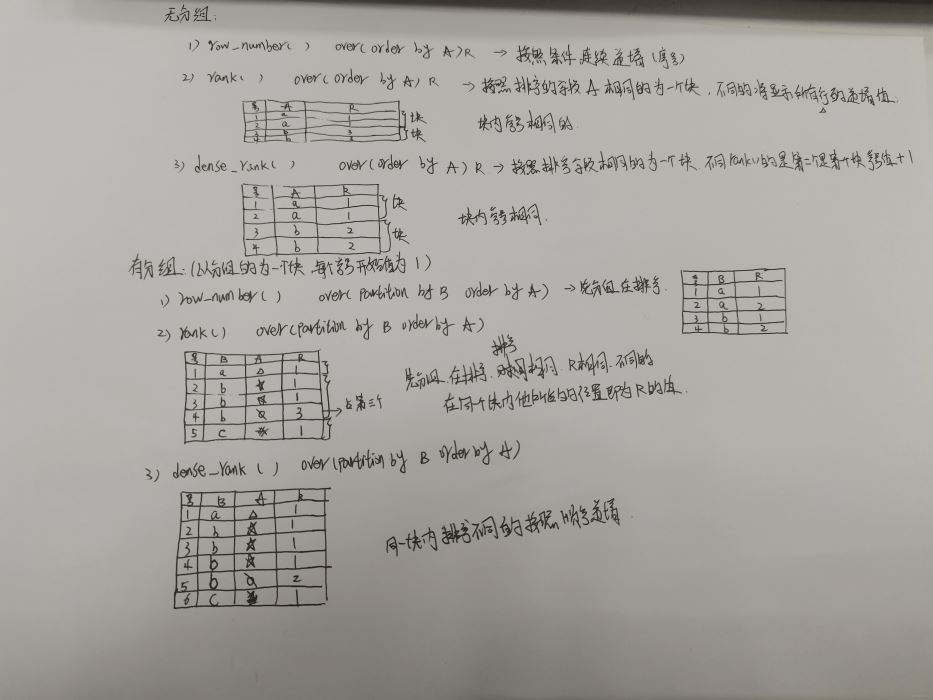 无分组:
1) row_number( ) over(order by A)R → 按照条件连续递增(序号)
2) rank( ) over(order by A) R → 按照排序的字段A相同的为一个块,不同的将显示所有行到的递增值
号 A R
1 a 1
2 a 1
3 b 3
4 b 3
}块
}块
块内序号相同的.
3) dense_rank( ) over(order by A) R → 按照排序字段相同的为一个块 不同rank()的是第二个是第一个块 值+1
号 A R
1 a 1
2 a 1
3 b 2
4 b 2
}块
}块
块内序号相同.
有分组:(以分组的为一个块 每个序号开始值为1)
1) row_number( ) over( partition by B order by A) → 先分组在排序.
号 B R
1 a 1
2 a 2
3 b 1
4 b 2
2) rank( ) over(partition by B order by A)
号 B A R
1 a △ 1
2 b ☆ 1
3 b ☆ 1
4 b Q 3
5 c ☆ 1
→占第三个
排序
先分组 在排序 相同 R相同.不同的
在同一个块内他所在的位置即为R的值.
3) dense_rank ( ) over(partition by B order by A)
号 B A R
1 a △ 1
2 b ☆ 1
3 b ☆ 1
4 b ☆ 1
5 b Q 2
6 c 1
同一块内排序不同的按照 序号递增.